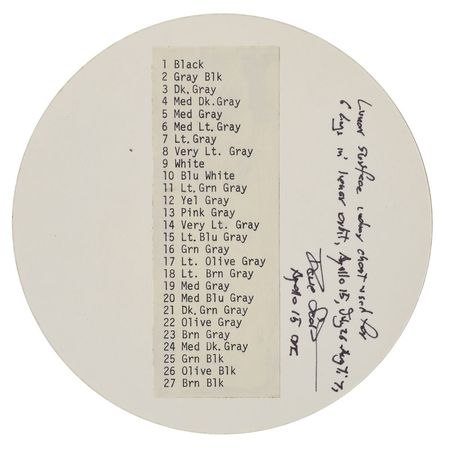 1 Black
2 Gray Blk
3 Dk.Gray
4 Med Dk.Gray
5 Med Gray
6 Med Lt.Gray
7 Lt.Gray
8 Very Lt. Gray
9 White
10 Blu White
11 Lt.Grn Gray
12 Yel Gray
13 Pink Gray
14 Very Lt. Gray
15 Lt.Blu Gray
16 Grn Gray
17 Lt. Olive Gray
18 Lt. Brn Gray
19 Med Gray
20 Med Blu Gray
21 Dk.Grn Gray
22 Olive Gray
23 Brn Gray
24 Med Dk.Gray
25 Grn Blk
26 Olive Blk
27 Brn Blk
Lunar surface color chart used for
6 days in lunar orbit, Apollo 15, July 26 Aug 7 '71,
Dave Scott
Apollo 15 CDR